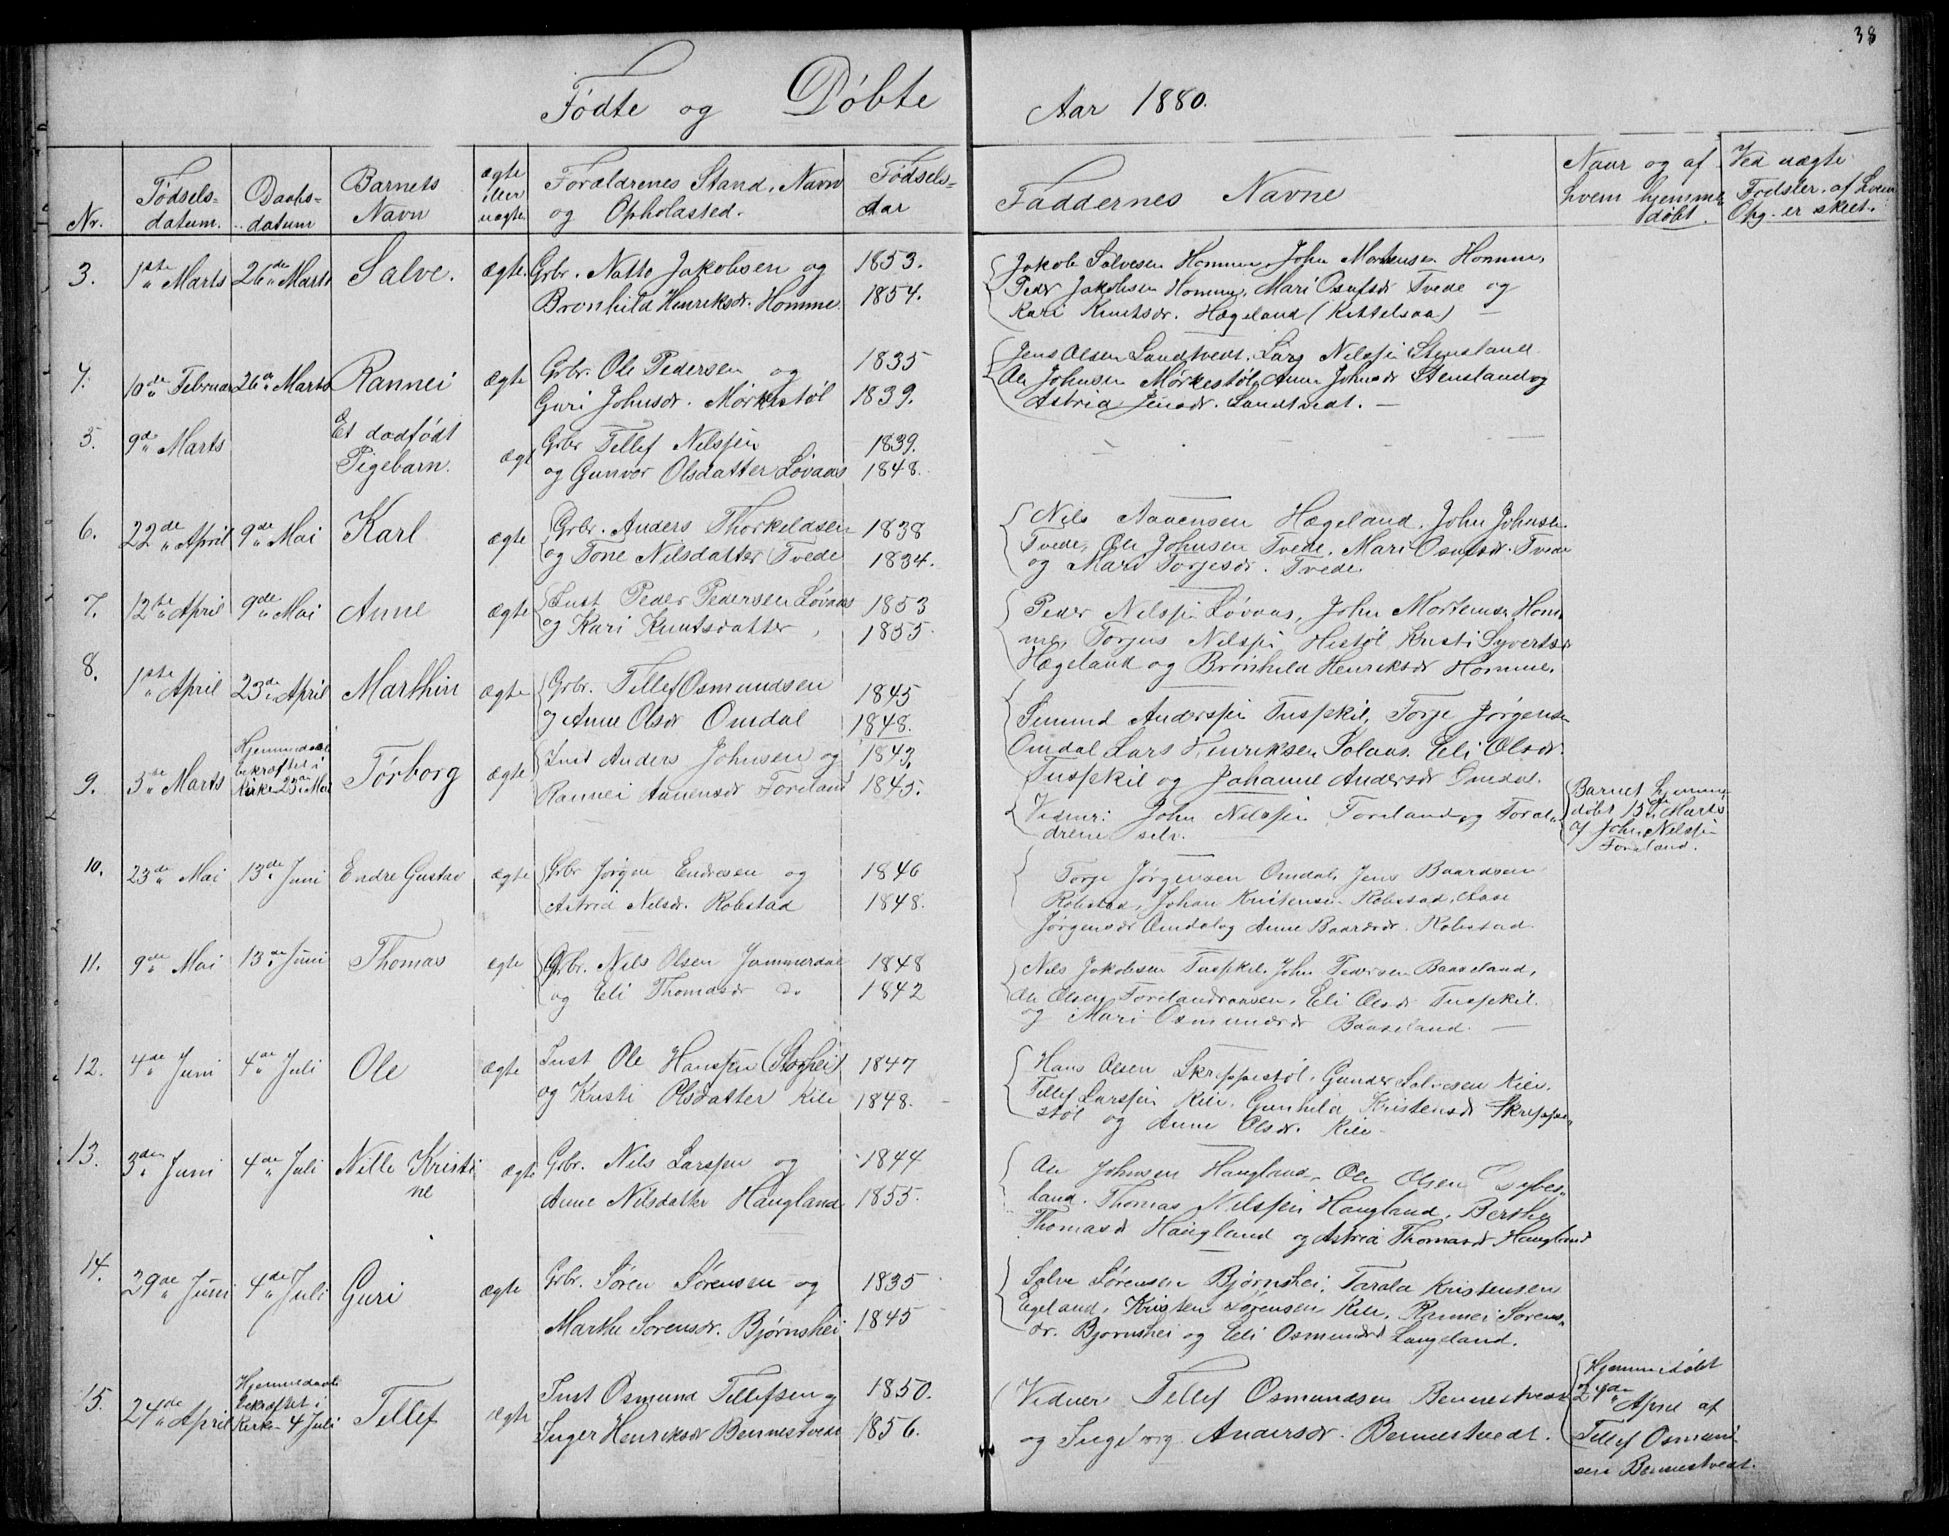 38
Fødte og Døbte Aar 1880.
Nr. Fødselsdatum. Daabsdatum Barnets Navn ægte eller uægte Forældrenes Stand, Navn og Opholdsted. Fødsels-Aar Faddernes Navne Naar og af hvem hjemmedøbt. Ved uægte Fødsler, af hvem Opg. er skeet.
3. 1ste Marts 26de Marts Salve. ægte. Grbr. Natto Jakobsen og 1853. Jakob Salvesen Homme, John Mortensen Homme,
Brønhild Henriksdr. Homme 1854. Peder Jakobsen Homme, Mari Osufsdr Tvede og
Kari Knutsdr. Hægeland (Kittelsaa) —
4. 10de Februar 26de Marts Rannei ægte Grbr. Ole Pedersen og 1835 Jens Olsen Landtvedt, Lars Nilssen Stensland
Guri Johnsdr. Mørkestøl 1839. Ole Johnsen Mørkestøl, Anne Johnsdr Stensland og
Astrid Jensdr. Landtvedt. —
5. 9de Marts Et dødfødt Pigebarn. ægte Grbr Tellef Nilssen 1839.
og Gunvor Olsdatter Løvaas 1848.
6. 22de April 9de Mai Karl ægte Grbr. Anders Thorkeldsen 1838 Nils Aanensen Hægeland, John Johnsen
og Tone Nilsdatter Tvede 1834. Tvede, Ole Johnsen Tvede, Mari Osufsdr. Tvede
og Mari Torjesdr. Tvede.
7. 12te April 9de Mai Anne ægte Inst Peder Pedersen Løvaas 1853 Peder Nilssen Løvaas, John Mortensen Hom-
og Kari Knutsdatter 1855. me, Torjus Nilssen Histøl, Kristi Syvertsdr
Hægeland og Brønhild Henriksdr Homme.
8. 1ste April 23de April Marthin ægte Grbr. Tellef Osmundsen 1845 Gunuld Anderssen Tuspkil, Torje Jørgensen
og Anne Olsdr Omdal 1848. Omdal, Lars Henriksen Solaas, Eli Olsdr.
Tuspkil og Johanne Andersdr Omdal.
9. 3die Marts Hjemmedaab bekræftet i Kirke 23de Mai Torborg ægte Inst Anders Johnsen og 1843, Vidner: John Nilssen Foreland og Foræl-
Rannei Aanensdr Foreland 1845. drene selv. Barnet hjemme-
døbt 15de Marts
af John Nilssen
Foreland.
10. 23de Mai 13de Juni Endre Gustav ægte Grbr Jørgen Endresen og 1846 Torje Jørgensen Omdal, Jens Baardsen
Astrid Nilsdr. Robstad 1848. Robstad, Johan Kristensen Robstad, Aase
Jørgensdr Omdal og Anne Baardsdr. Robstad
11. 9de Mai 13de Juni Thomas ægte Grbr. Nils Olsen Jammerdal 1848 Nils Jakobsen Tuspkil, John Pedersen Baaseland,
og Eli Thomasdr do 1842 Ole Olsen Forelandsaasen, Eli Olsdr Tuspkil
og Mari Osmundsdr Baaseland. —
12. 4de Juni 4de Juli Ole ægte Inst Ole Hanssen (Skoghei) 1847 Hans Olsen Skreppestøl, Gunder Salvesen Kile,
og Kristi Olsdatter Kile 1848. Tellef Larssen Kile, Gunhild Kristensdr Skreppe-
støl og Anne Olsdr. Kile
13. 3die Juni 4de Juli Nille Kristine ægte Grbr. Nils Larssen og 1844 Ole Johnsen Haugland, Ole Olsen
Anne Nilsdatter Haugland 1855. land, Thomas Nilssen Haugland, Berthe
Thomasdr Haugland og Astrid Thomasdr Haugland
14. 29de Juni 4de Juli Guri ægte Grbr. Søren Sørensen og 1835 Salve Sørensen Bjørnshei, Tarald Kristensen
Marthe Sorensdr. Bjørnshei 1845 Egeland, Kristen Sørensen Kile, Rannei Sørens-
dr. Bjørnshei og Eli Osmundsdr Langeland.
15. 24de April Hjemmedaab bekræftet i Kirke 4 Juli Tellef ægte Inst Osmund Tellefsen og 1850. Vidner Tellef Osmundsen Bennestvedt
Inger Henriksdr Bennestvedt 1856. og Ingeborg Andersdr. Bennestvedt.
Hjemmedøbt
24de April af
Tellef Osmund-
sen Bennestvedt.